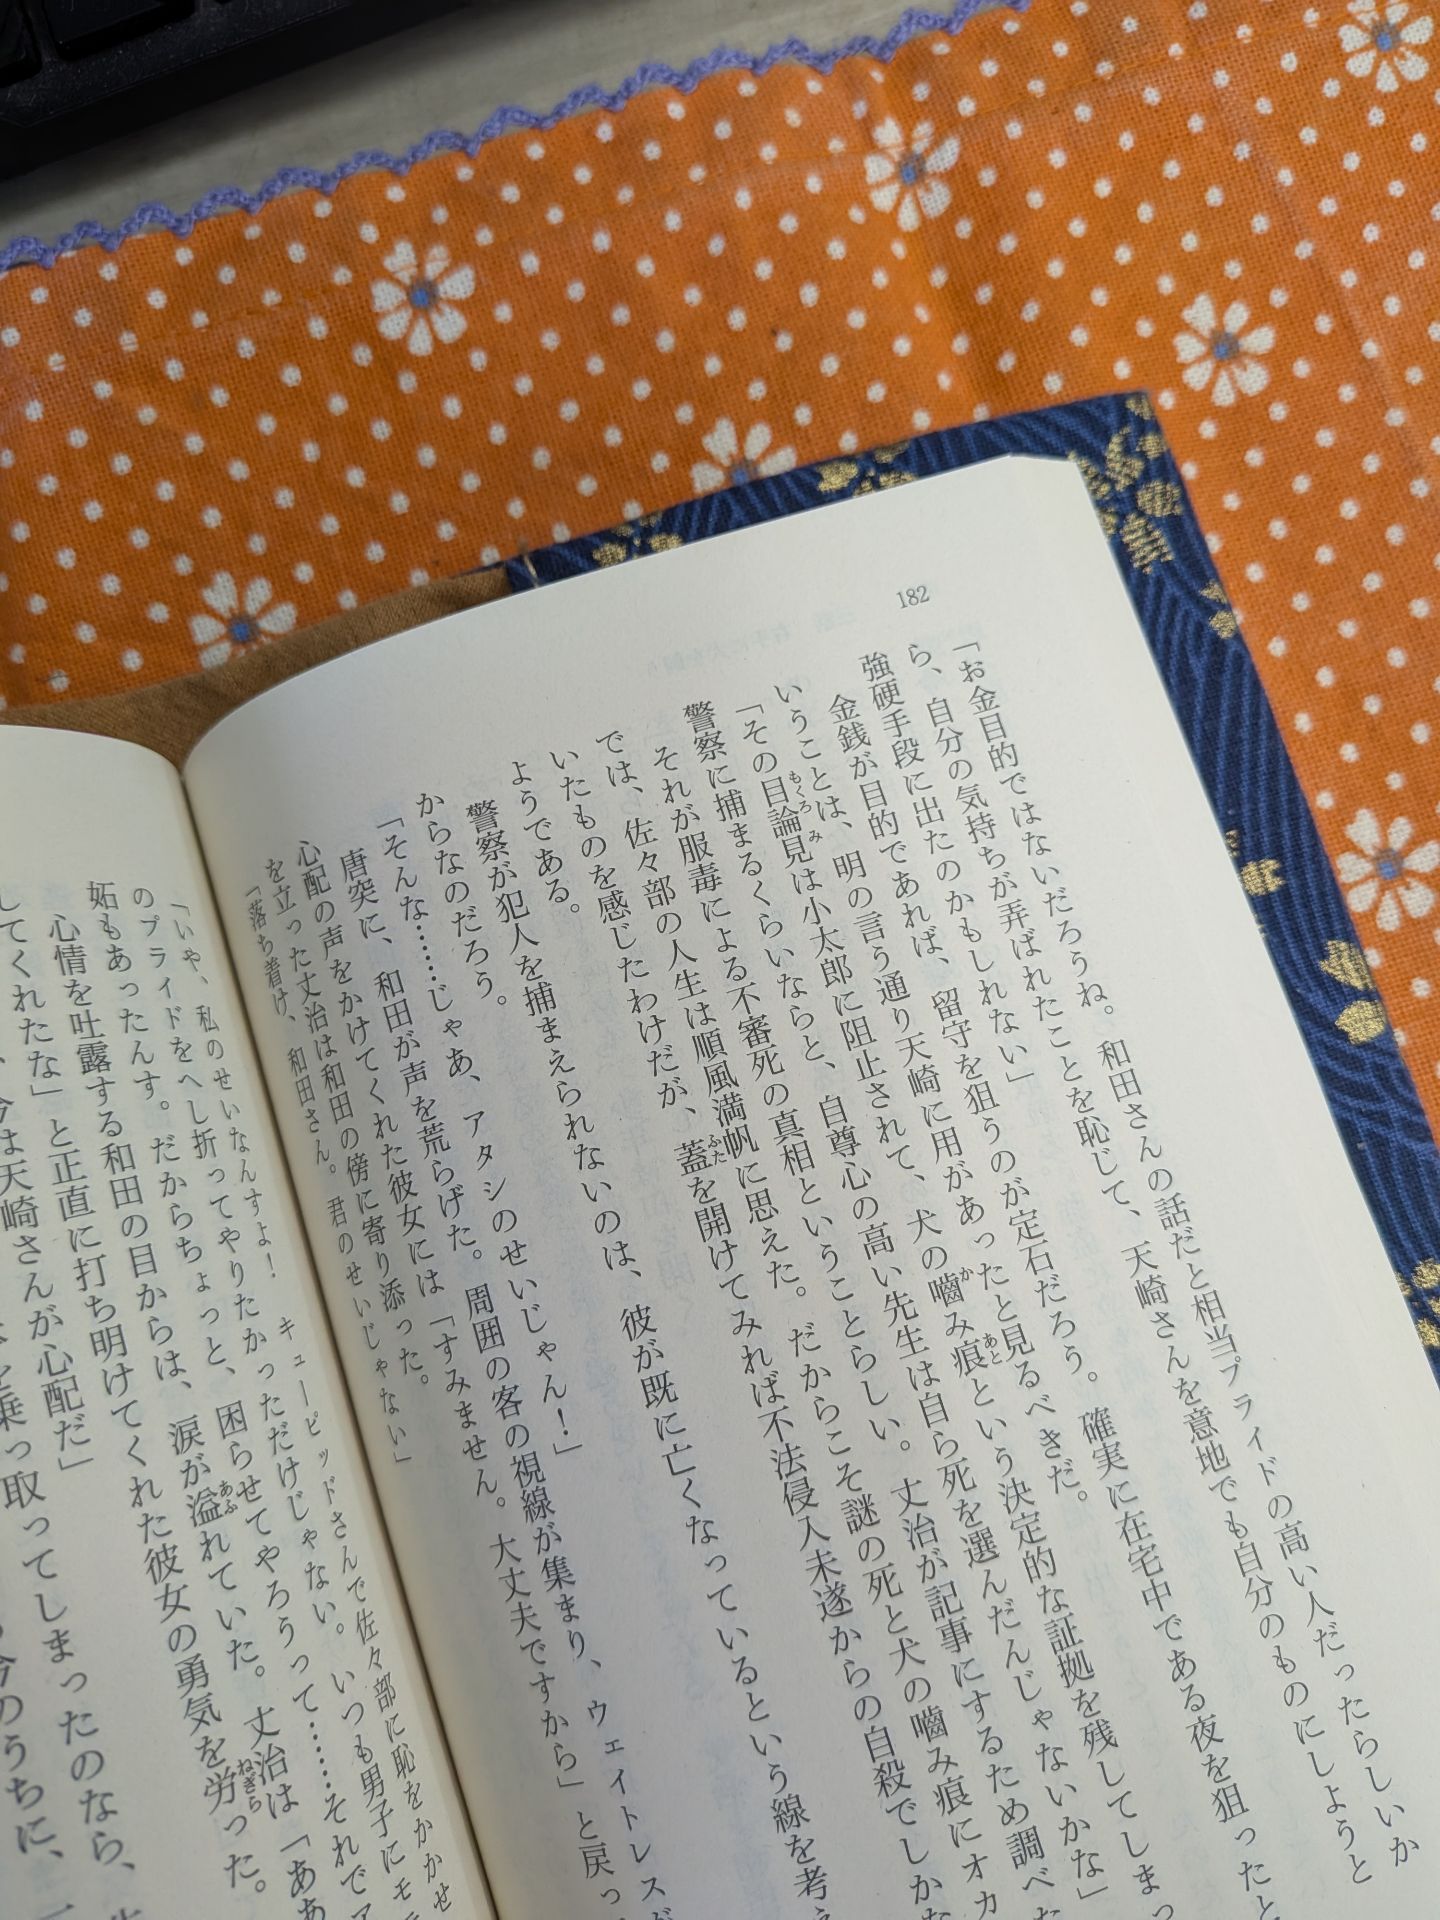 182
「お金目的ではないだろうね。和田さんの話だと相当プライドの高い人だったらしいか
ら、自分の気持ちが弄ばれたことを恥じて、天崎さんを意地でも自分のものにしようと
強硬手段に出たのかもしれない」
金銭が目的であれば、留守を狙うのが定石だろう。確実に在宅中である夜を狙ったと
いうことは、明の言う通り天崎に用があったと見るべきだ。
「その目論見は小太郎に阻止されて、犬の嚙み痕という決定的な証拠を残してしまっ
警察に捕まるくらいならと、自尊心の高い先生は自ら死を選んだんじゃないかな」
それが服毒による不審死の真相ということらしい。丈治が記事にするため調べた
では、佐々部の人生は順風満帆に思えた。だからこそ謎の死と犬の嚙み痕にオカ
いたものを感じたわけだが、蓋を開けてみれば不法侵入未遂からの自殺でしかな
ようである。
警察が犯人を捕まえられないのは、彼が既に亡くなっているという線を考え
からなのだろう。
「そんな……じゃあ、アタシのせいじゃん！」
唐突に、和田が声を荒らげた。周囲の客の視線が集まり、ウェイトレスが
心配の声をかけてくれた彼女には「すみません。大丈夫ですから」と戻っ
を立った丈治は和田の傍に寄り添った。
「落ち着け、和田さん。君のせいじゃない」
「いや、私のせいなんすよ！　キューピッドさんで佐々部に恥をかかせ
のプライドをへし折ってやりたかっただけじゃない。いつも男子にモ
妬もあったんす。だからちょっと、困らせてやろうって……それでア
心情を吐露する和田の目からは、涙が溢れていた。丈治は「ああ
してくれたな」と正直に打ち明けてくれた彼女の勇気を労った。
今は天崎さんが心配だ」
乗っ取ってしまったのなら、
今のうちに、一